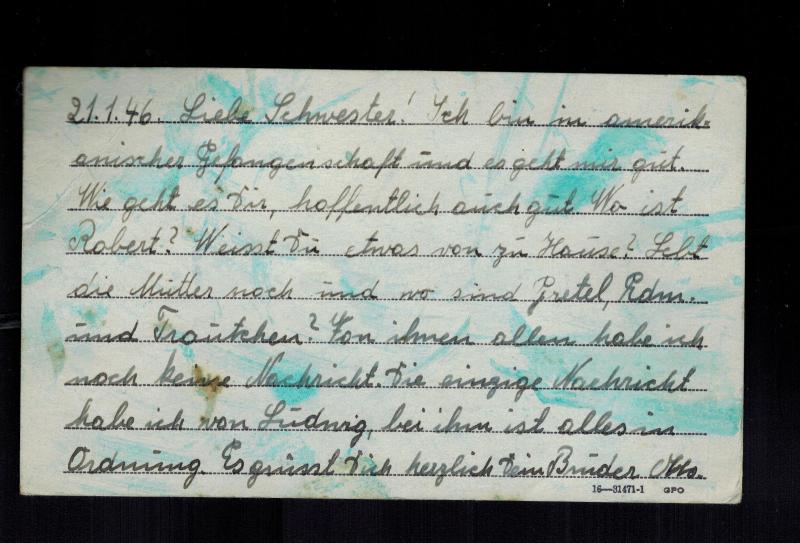 21.1.46. Liebe Schwester! Ich bin in amerik-
anischer Gefangenschaft und es geht mir gut.
Wie geht es Dir, hoffentlich auch gut. Wo ist
Robert? Weisst Du etwas von zu Hause? Lebt
die Mutter noch und wo sind Gretel,
und Trautchen? Von ihnen allen habe ich
noch keine Nachricht. Die einzige Nachricht
habe ich von Ludwig, bei ihm ist alles in
Ordnung. Es grüsst Dich herzlich Dein Bruder Otto.
16—31471-1 GPO